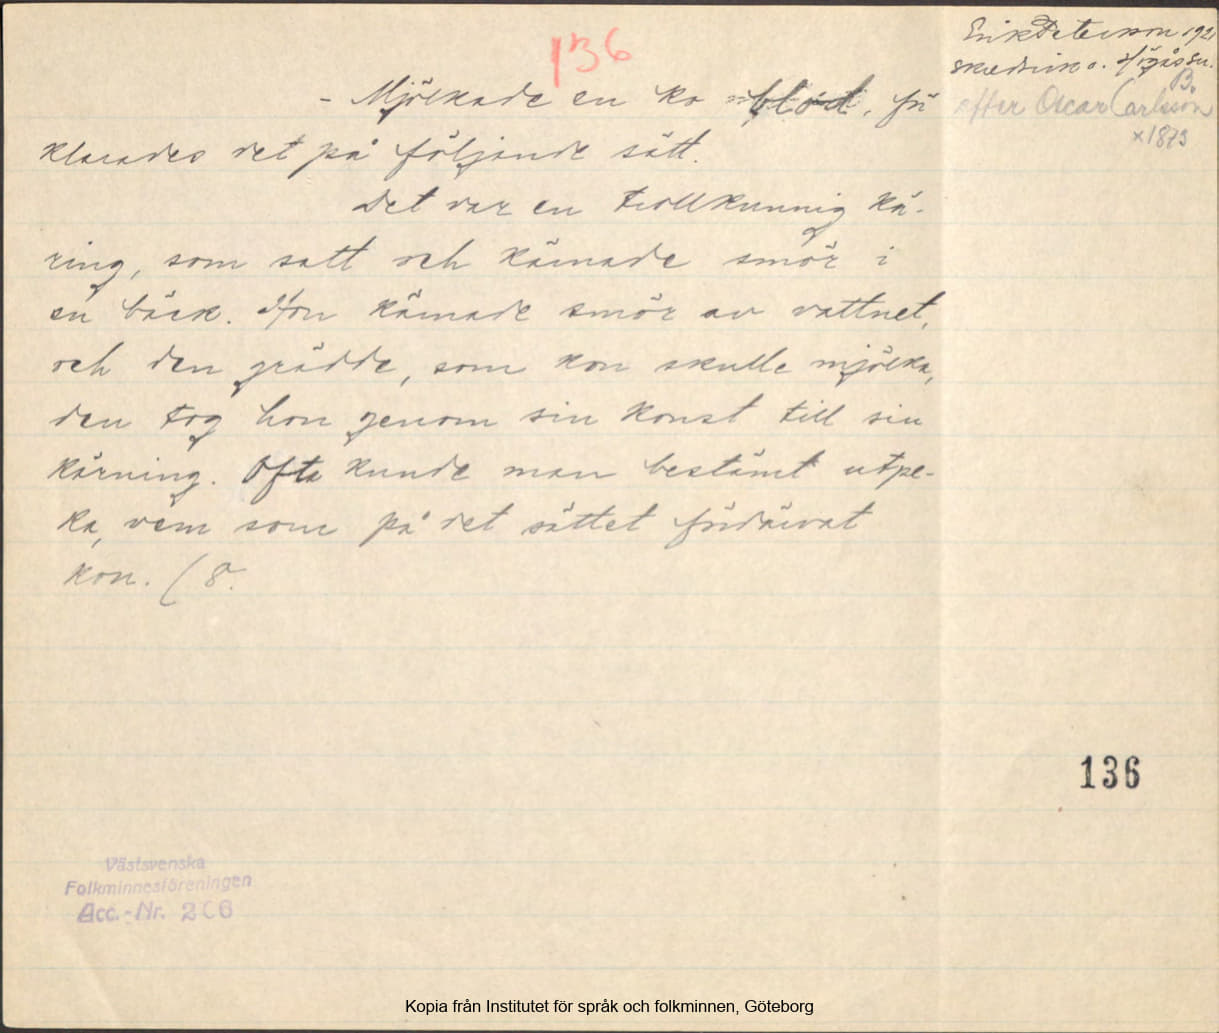 136
Erik Peterson 1921
Skredsvik o. Högås sn.
B.
efter Oscar Carlsson
x 1873
- Mjölkade en ko blod, för
klarades det på följande sätt.
Det var en trollkunnig kä-
ring, som satt och kärnade smör i
en bäck. Hon kärnade smör av vattnet,
och den grädde, som kon skulle mjölka,
den tog hon genom sin konst till sin
kärning. Ofta kunde man bestämt utpe-
ka, vem som på det sättet fördärvat
kon. (8.
136
Västsvenska
Folkminnesföreningen
Acc.-Nr. 206
Kopia från Institutet för språk och folkminnen, Göteborg